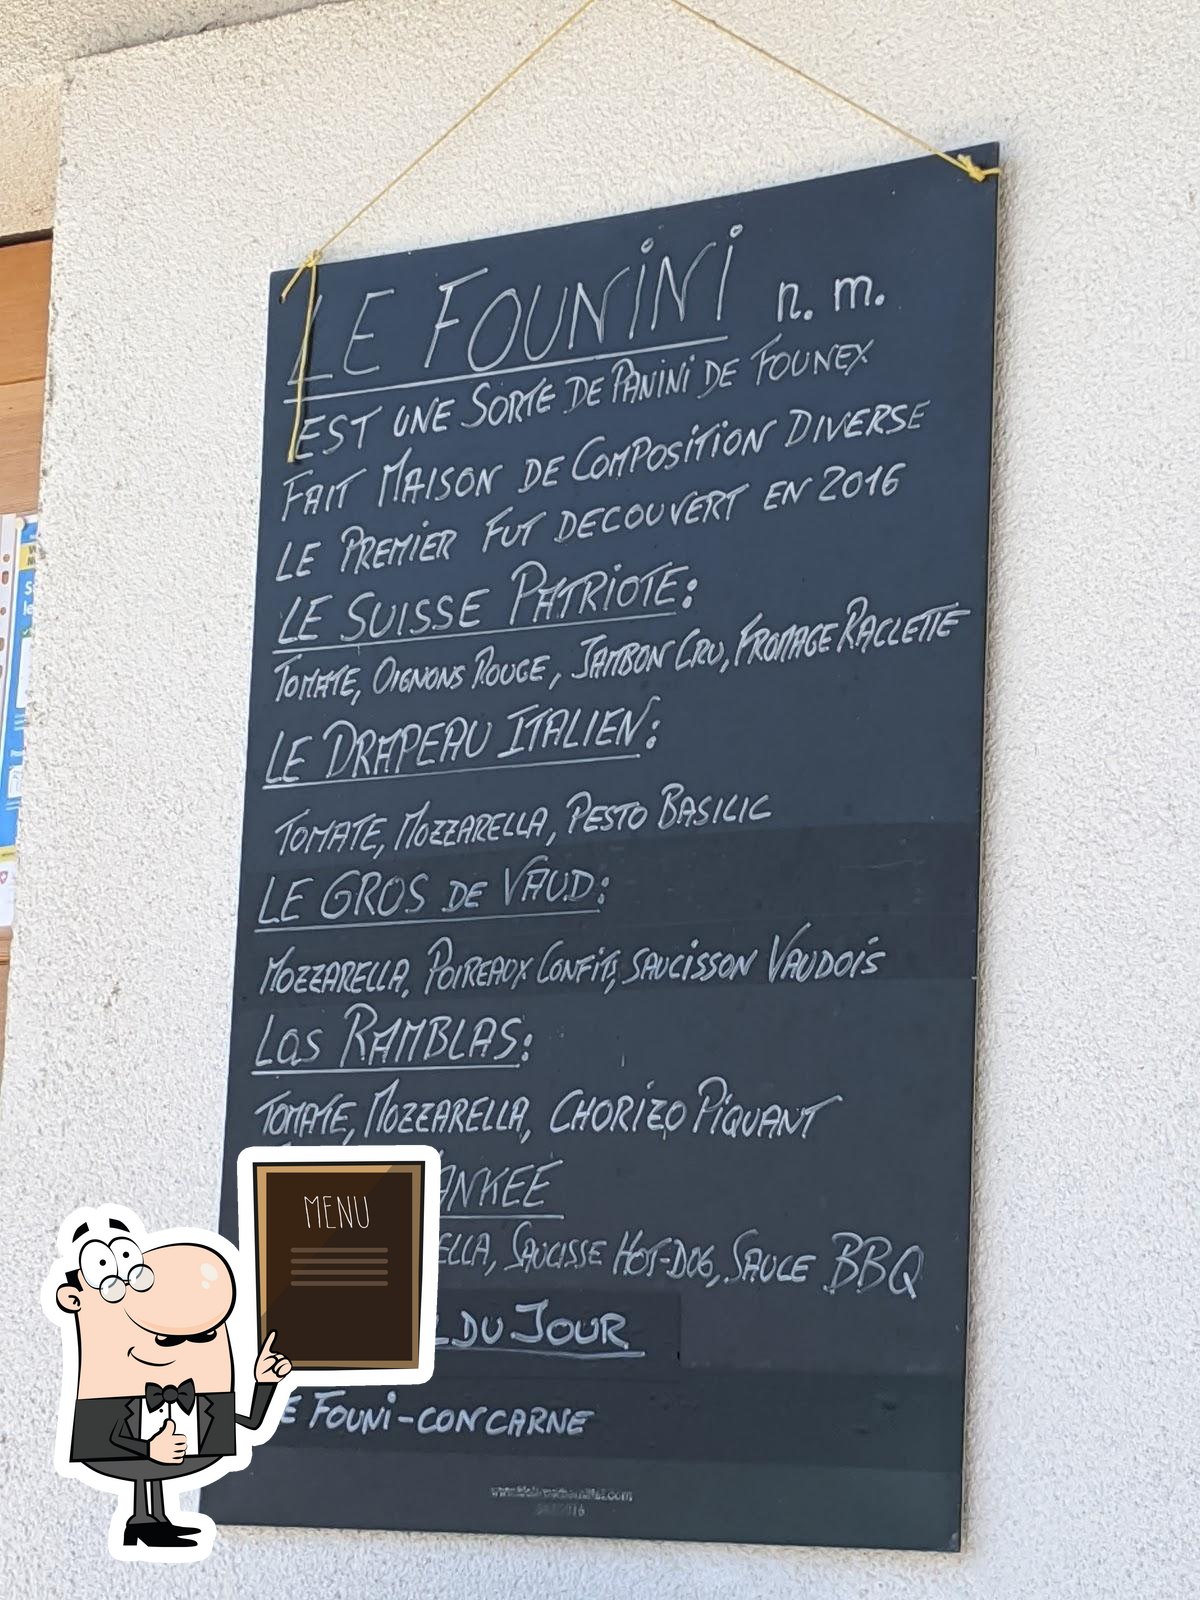 LE FOUNINI n. m.
EST UNE SORTE DE PANINI DE FOUNEX
FAIT MAISON DE COMPOSITION DIVERSE
LE PREMIER FUT DECOUVERT EN 2016
LE SUISSE PATRIOTE:
TOMATE, OIGNONS ROUGE, JAMBON CRU, FROMAGE RACLETTE
LE DRAPEAU ITALIEN:
TOMATE, MOZZARELLA, PESTO BASILIC
LE GROS DE VAUD:
MOZZARELLA, POIREAUX CONFITS, SAUCISSON VAUDOIS
Las RAMBLAS:
TOMATE, MOZZARELLA, CHORIZO PIQUANT
ANKEE
ELLA, SAUCISSE HOT-DOG, SAUCE BBQ
DU JOUR
E FOUNI-CONCARNE
MENU